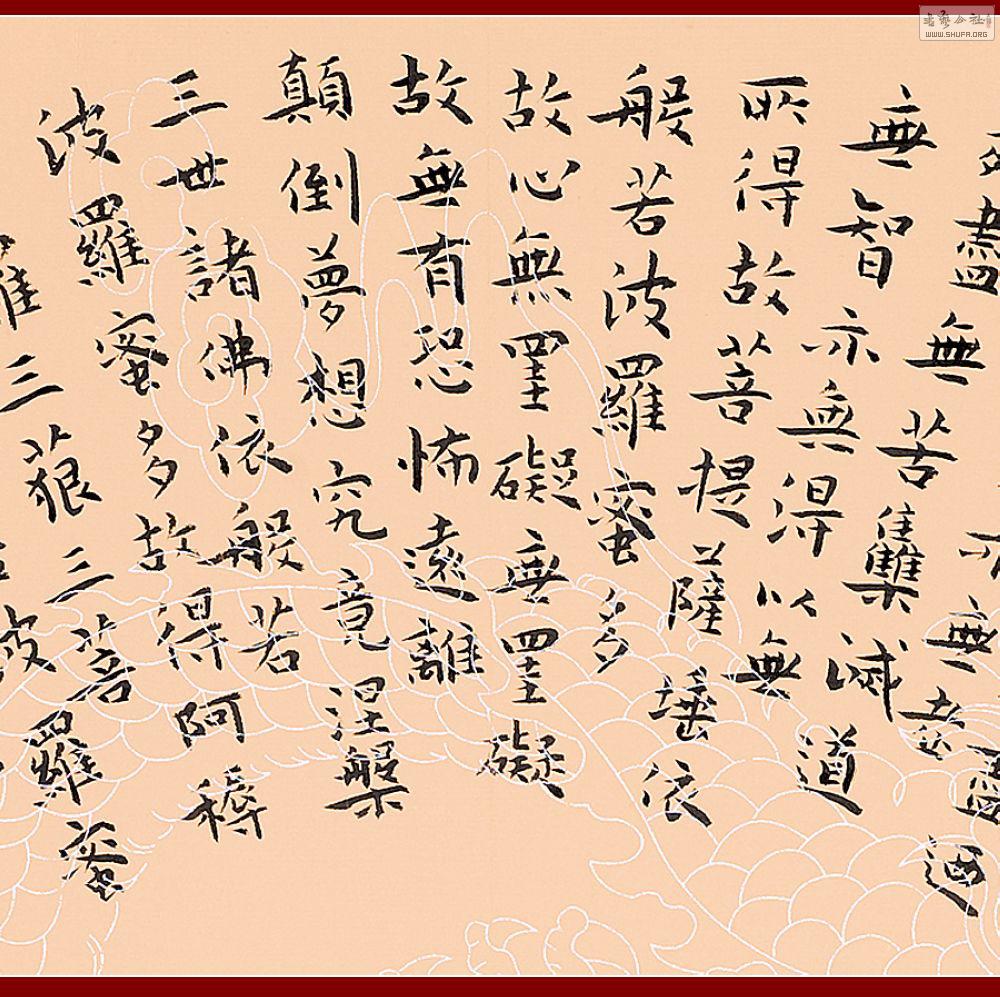 盡迺
無老
盡無苦集滅道
無智亦無得以無
所得故菩提薩埵依
般若波羅蜜多
故心無罣礙無罣礙
故無有恐怖遠離
顛倒夢想究竟涅槃
三世諸佛依般若
波羅蜜多故得阿耨
羅三藐三菩
波羅蜜
WWW.SHUFA.ORG